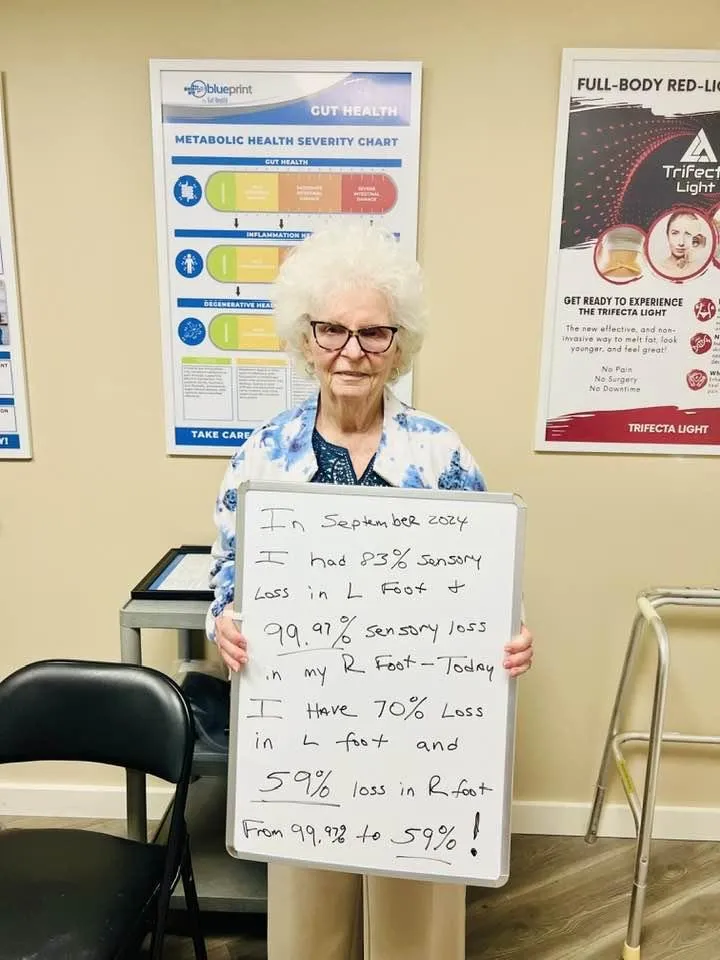 blueprint
GUT HEALTH
METABOLIC HEALTH SEVERITY CHART
GUT HEALTH
SEVERE INTESTINAL DAMAGE
INFLAMMATION HE
DEGENERATIVE HEA
TAKE CARE
FULL-BODY RED-LI
Trifect
Light
GET READY TO EXPERIENCE
THE TRIFECTA LIGHT
The new effective, and non-
invasive way to melt fat, look
younger, and feel great!
No Pain
No Surgery
No Downtime
TRIFECTA LIGHT
In September 2024
I had 83% sensory
Loss in L Foot &
99.97% sensory loss
in my R Foot - Today
I Have 70% Loss
in L foot and
59% loss in R foot
From 99.97% to 59%!